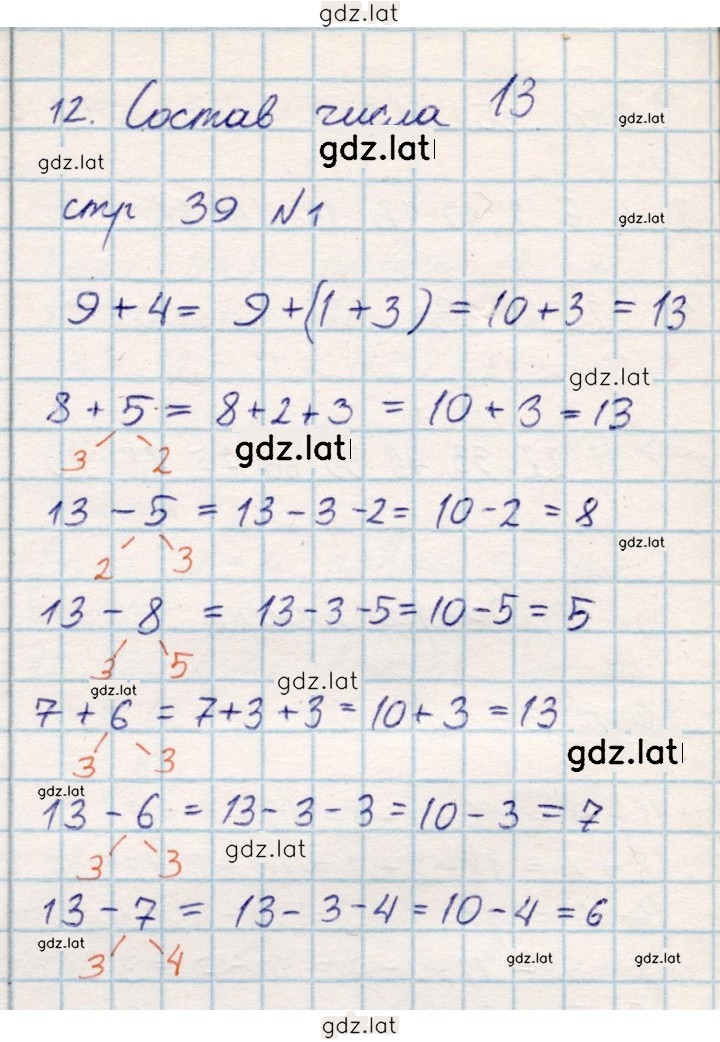 gdz.lat
12. Состав числа 13
gdz.lat
gdz.lat
gdz.lat
стр 39 №1
gdz.lat
9 + 4 = 9 + (1 + 3) = 10 + 3 = 13
gdz.lat
8 + 5 = 8 + 2 + 3 = 10 + 3 = 13
3 2
gdz.lat
13 - 5 = 13 - 3 - 2 = 10 - 2 = 8
gdz.lat
2 3
13 - 8 = 13 - 3 - 5 = 10 - 5 = 5
3 5
gdz.lat
gdz.lat
7 + 6 = 7 + 3 + 3 = 10 + 3 = 13
gdz.lat
3 3
gdz.lat
13 - 6 = 13 - 3 - 3 = 10 - 3 = 7
gdz.lat
3 3
13 - 7 = 13 - 3 - 4 = 10 - 4 = 6
gdz.lat
3 4
gdz.lat
gdz.lat
gdz.lat